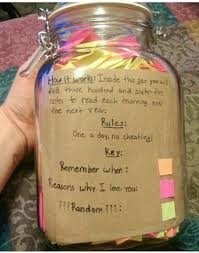 How it works: Inside this jar you will
find three hundred and sixty-five
notes to read each morning over
the next year.
Rules:
One a day, no cheating!
Key:
Remember when:
Reasons why I love you:
???Random???: